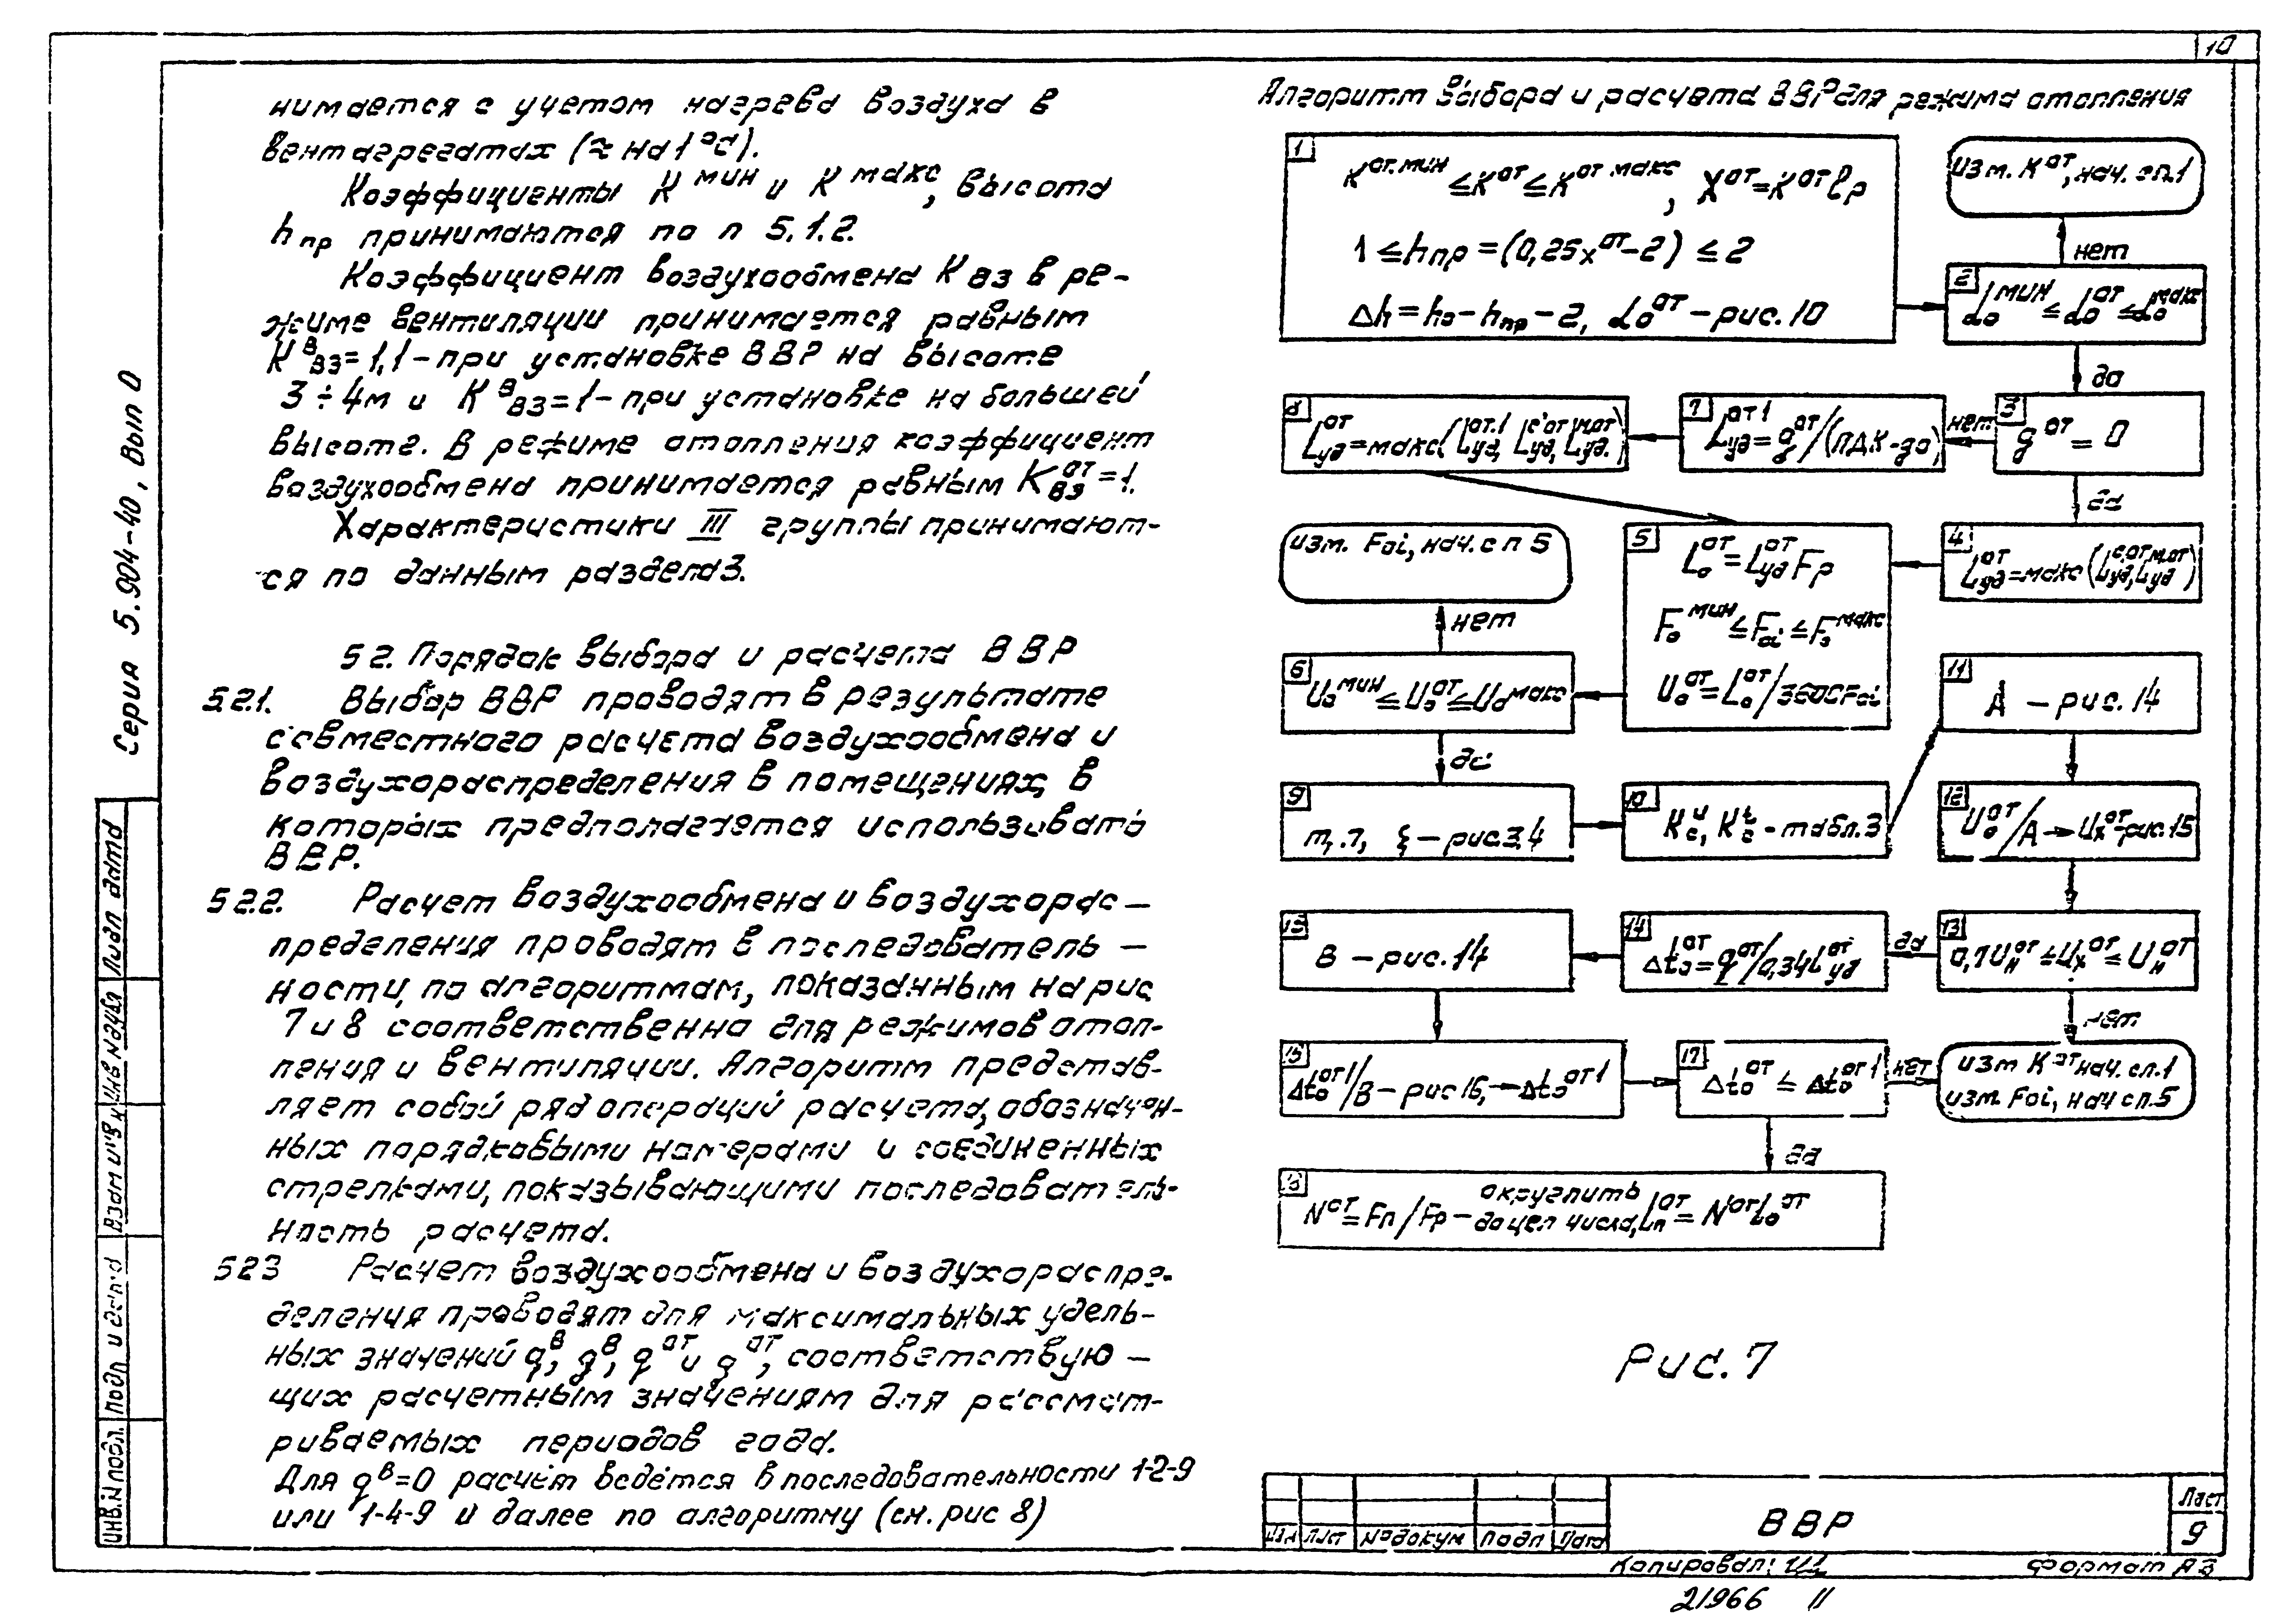 10
нимается с учетом нагрева воздуха в
вентагрегатах (≈ на 1°С).
Коэффициенты K мин и K макс, высота
hпр принимаются по п 5.1.2.
Коэффициент воздухообмена Kвз в ре-
жиме вентиляции принимается равным
Kᴮвз=1,1-при установке ВВР на высоте
3÷4м и Kᴮвз=1-при установке на большей
высоте. В режиме отопления коэффициент
воздухообмена принимается равным Kᵒᵀвз=1.
Характеристики III группы принимают-
ся по данным раздела 3.
5 2. Порядок выбора и расчета ВВР
5.2.1. Выбор ВВР проводят в результате
совместного расчета воздухообмена и
воздухораспределения в помещениях, в
которых предполагается использовать
ВВР.
5 2.2. Расчет воздухообмена и воздухорас-
пределения проводят в последователь-
ности, по алгоритмам, показанным на рис
7 и 8 соответственно для режимов отоп-
ления и вентиляции. Алгоритм представ-
ляет собой ряд операций расчета, обозначен-
ных порядковыми номерами и соединенных
стрелками, показывающими последователь-
ность расчета.
5 2 3 Расчет воздухообмена и воздухораспре-
деления проводят для максимальных удель-
ных значений qᴮ, gᴮ, qᵒᵀ и gᵒᵀ, соответствую-
щих расчетным значениям для рассмат-
риваемых периодов года.
Для qᴮ=0 расчёт ведётся в последовательности 1-2-9
или 1-4-9 и далее по алгоритму (см. рис 8)
Алгоритм выбора и расчета ВВР для режима отопления
1
Kот.мин ≤Kот≤Kот макс, Xот=Kот ℓр
1 ≤hпр=(0,25xот-2) ≤ 2
Δh=hо-hпр-2, αоот-рис. 10
изм. Kот, нач. с п.1
нет
2
αомин ≤αоот ≤αомакс
да
8
Lудот=макс(Lудот.1, Lудс от, Lудм.от)
7
Lудот1=gот/(ПДК-gо)
нет
3
gот = 0
да
изм. Foi, нач. с п 5
5
Lоот=Lудот Fр
Fомин ≤Foi ≤Fомакс
Uоот=Lоот/3600Foi
4
Lудот=макс(Lудс.от, Lудм.от)
нет
6
Uомин ≤Uоот ≤Uомакс
11
А - рис. 14
да
9
m, n, ξ - рис. 3,4
10
Kси, Kсt - табл. 3
12
Uоот/А → Uх - рис. 15
15
В - рис. 14
14
Δtоот=qот/0,34Lудот
да
13
0,7Uнот ≤Uхот ≤ Uнот
нет
Δtоот1/В - рис 16, → Δtоот1
17
Δtоот ≤ Δtоот1
нет
изм Kот нач. с п.1
изм. Foi, нач с п.5
да
18
Nот=Fп/Fр - округлить до цел числа, Lпот = Nот Lоот
Рис. 7
Серия 5.904-40, Вып 0
Инв. N подл.
Подп и дата
Взам инв N
Инв N дубл
Подп дата
Изм Лист № докум Подп Дата
ВВР
Лист
9
Копировал:
Формат А3
21966 11